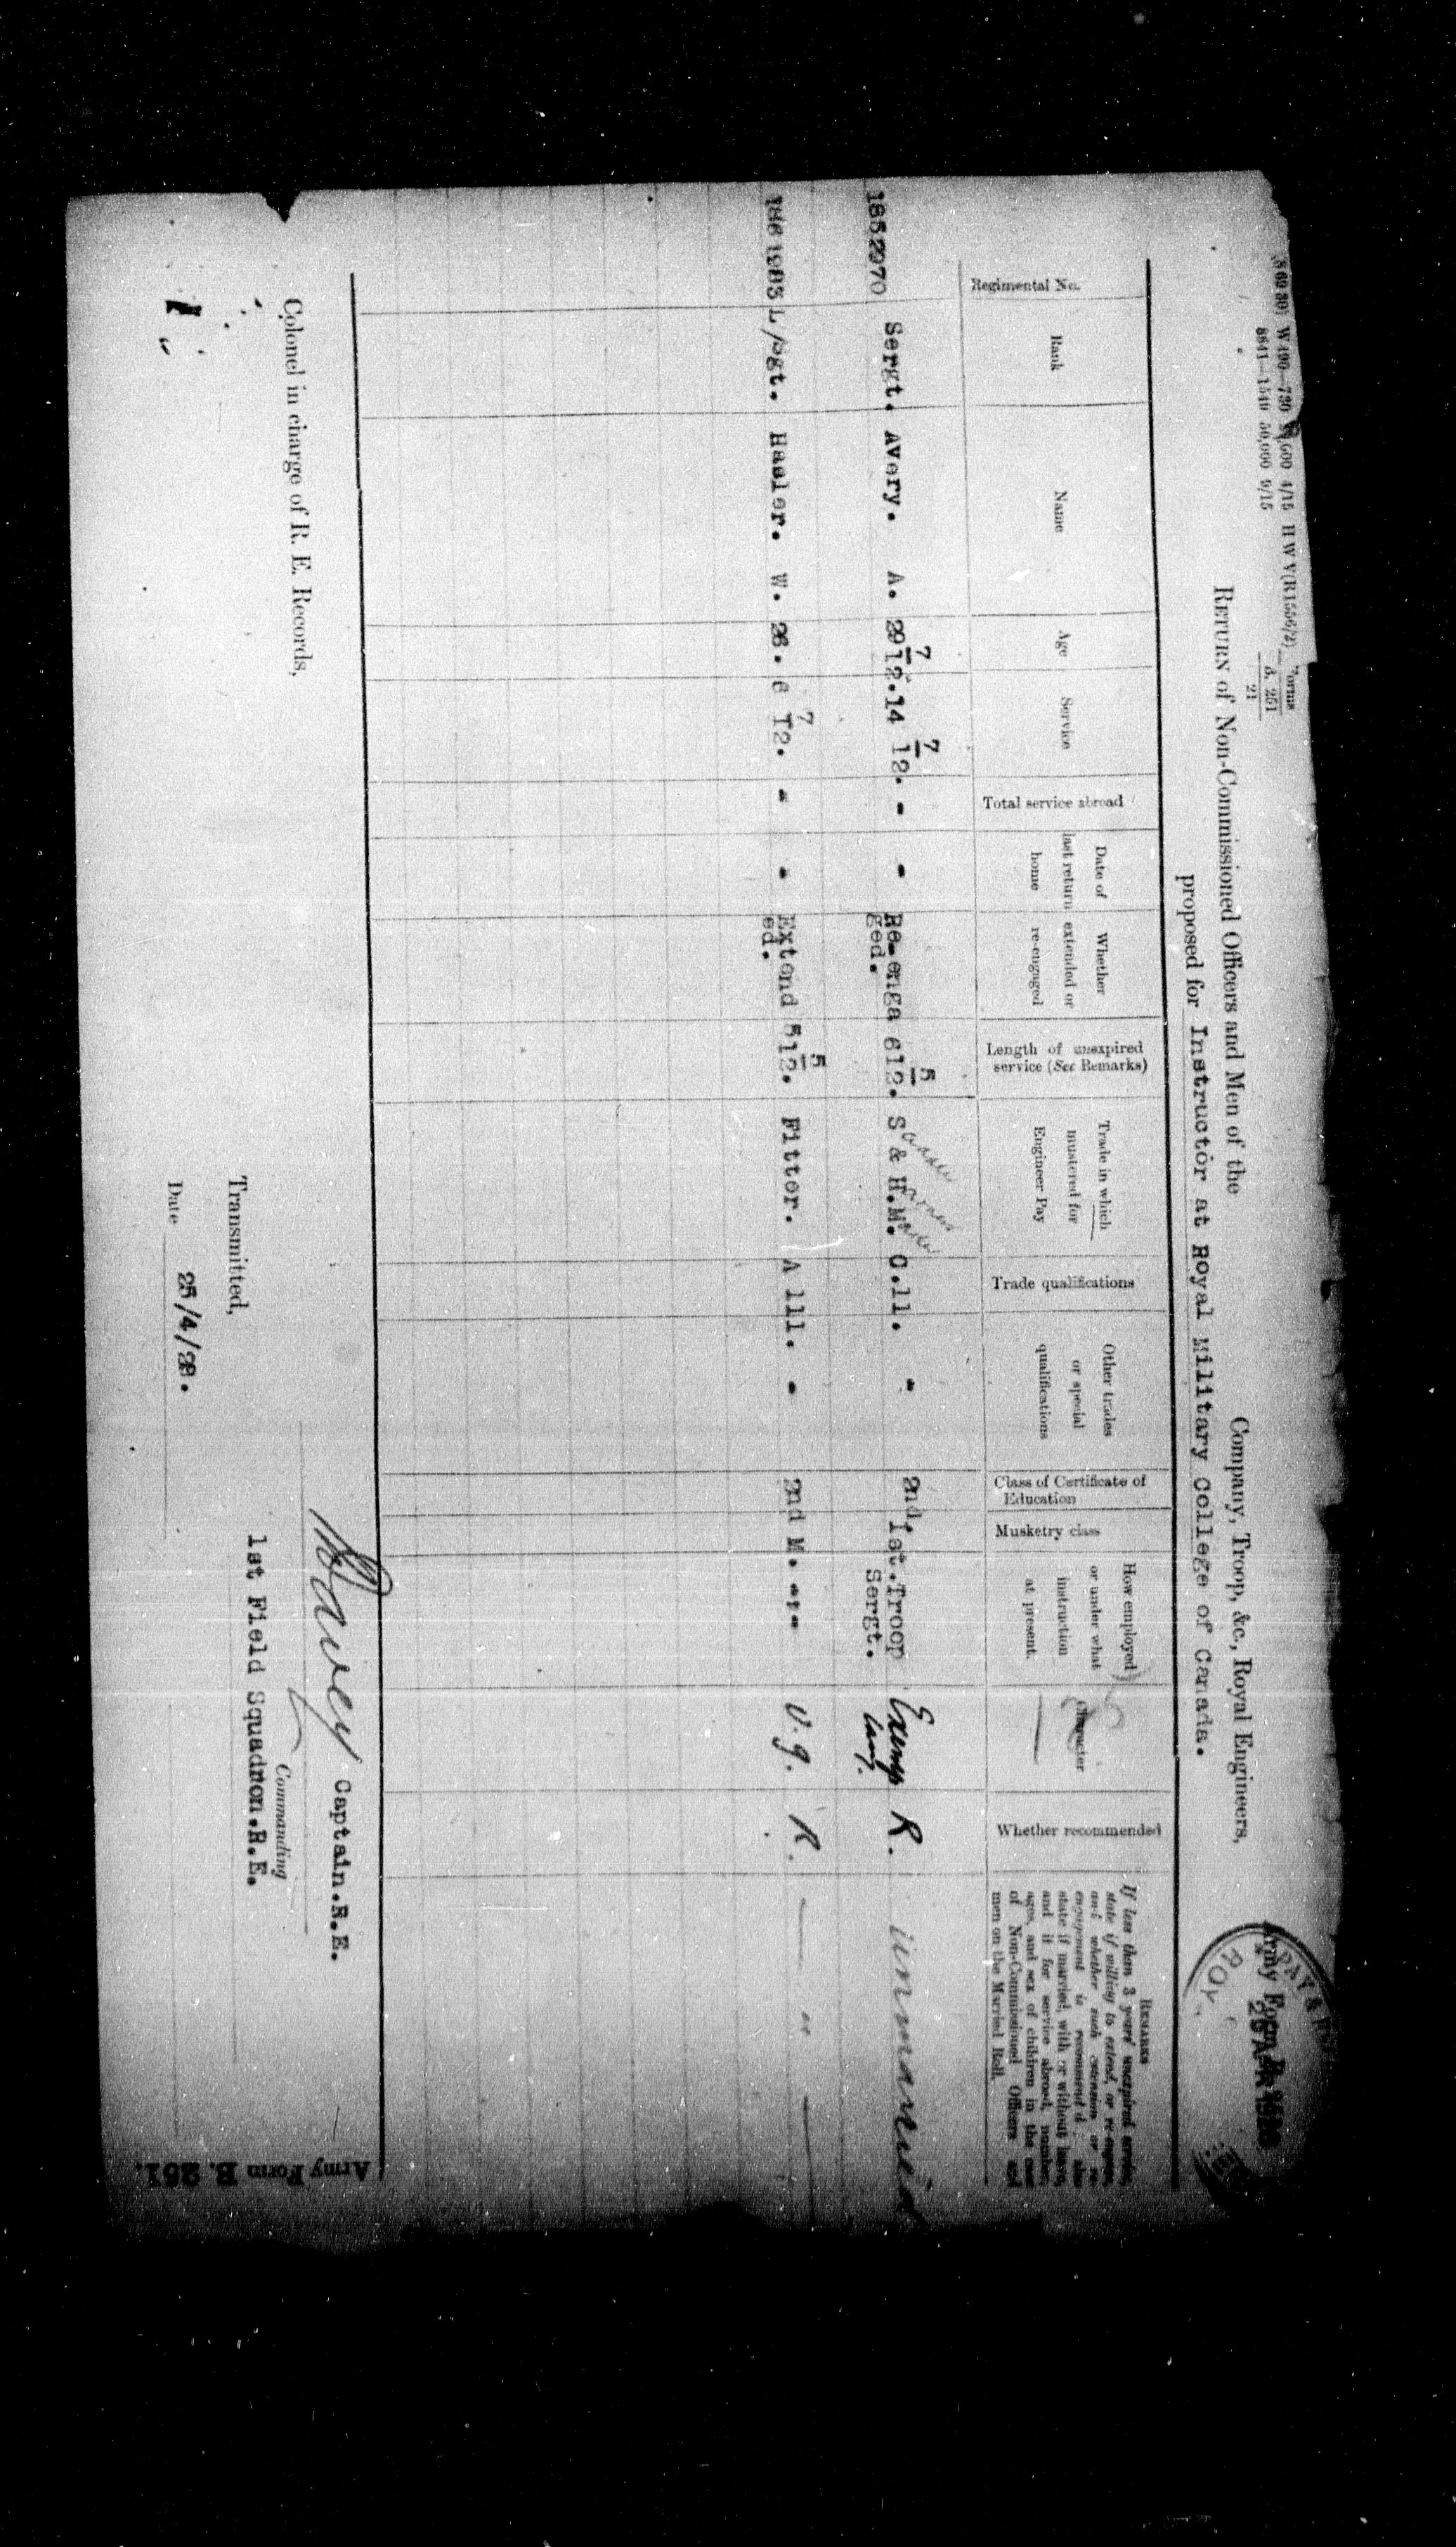 Army Form B. 251
29 APR 1928
PAY &
ROY
RETURN of Non-Commissioned Officers and Men of the Company, Troop, &c., Royal Engineers,
proposed for Instructor at Royal Military College of Canada.
Regimental No.
Rank
Name
Age
Service
Total service abroad
Date of last return home
Whether extended or re-engaged
Length of unexpired service (See Remarks)
Trade in which mustered for Engineer Pay
Trade qualifications
Other trades or special qualifications
Class of Certificate of Education
Musketry class
How employed or under what instruction at present.
Character
Whether recommended
REMARKS
If less than 3 years' unexpired service,
state if willing to extend, or re-engage,
and whether such extension or re-
engagement is recommended; also
state if married, with or without leave,
and if for service abroad, number,
ages, and sex of children in the case
of Non-Commissioned Officers and
men on the Married Roll.
1852970 Sergt. Avery. A. 29 7/12. 14 7/12. - - Re-enga 6 5/12. S & H.M. C.11. - 2nd. 1st. Troop Exemp R. unmarried
ged. Sergt. lary.
L/Sgt. Hasler. W. 26. 6 7/12. - - Extend 5 5/12. Fitter. A 111. - 2nd M. V.g. R. — " —
ed.
Colonel in charge of R. E. Records,
Transmitted,
Date 25/4/28.
Davey Captain.R.E.
Commanding
1st Field Squadron.R.E.
Army Form B. 251.